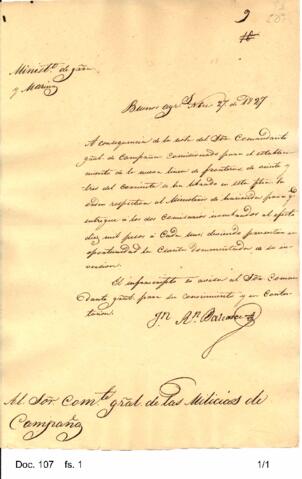 9
Minist.o de gãra
y Marina
Buenos ayr.s Nov.e 27 de 1827
A consequencia de la nota del Sor Comandante
gral de Campaña comisionado para el estable
cimiento de la nueva linea de frontera de veinte y
tres del corriente se ha librado en esta fha la
orden respectiva al Ministerio de hacienda para q.e
entregue a los dos Comisarios nombrados al efecto
diez mil pesos a cada uno, debiendo presentar en
oportunidad la Cuenta documentada de su in
version.
El infrascripto lo avisa al Sor Coman
dante gral para su conocimiento y en Contes
tacion.
J.n R.n Balcarce
Al Sor. Com.te gral. de las Milicias de
Campaña
Doc. 107 fs. 1
1/1